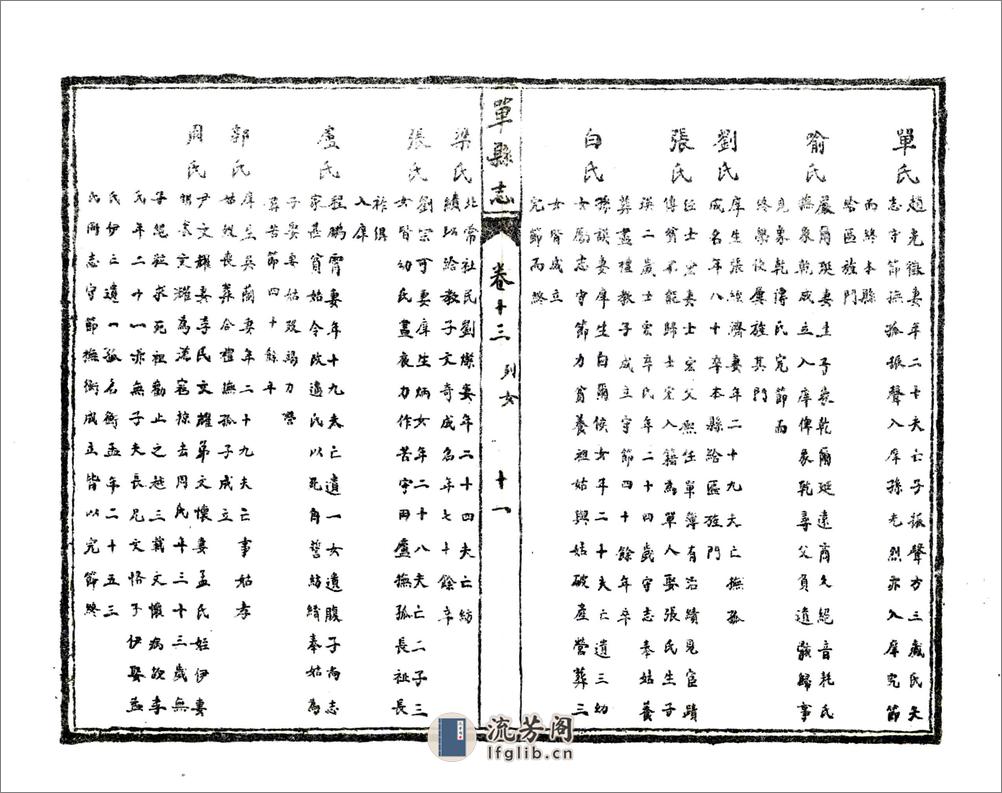 單氏 趙光徵妻年二十夫亡子振聲方三歲氏矢
志守節撫孤振聲入庠孫光烈亦入庠完節
而終本縣
給區旌門
喻氏 嚴爾珽妻生子象乾爾珽遠商久絕音耗氏
撫象乾成立入庠俾象乾尋父負遺骸歸事
見象乾傳氏完節而
終學使廉旌其門
劉氏 庠生張經濟妻年二十九夫亡撫孤
成名年八十卒本縣給區旌門
張氏 任士宏妻士宏父熙任單簿有治績見宦蹟
傳貧不能歸士宏入籍為單人娶張氏生子
瑛二歲士宏卒氏年二十四歲守志奉姑養
葬盡禮教子成立守節四十餘年卒
白氏 孫謨妻庠生白爾候女年二十夫亡遺三幼
女勵志守節力貧養祖姑與姑破產營葬三
女皆成立
完節而終
單縣志 卷十三 列女 十一
梁氏 北常社民劉燦妻年二十四夫亡紡
績以給教子文奇成名年七十餘卒
張氏 劉宗可妻庠生炳女年二十八夫亡二子三
女皆幼氏晝夜力作苦守田廬撫孤長祉長
祚俱
入庠
盧氏 程鵬霄妻年十九夫亡遺一女遺腹子尚志
家甚貧姑令改適氏以死自誓紡績奉姑為
子娶妻姑歿竭力營
葬苦節四十餘年
郭氏 庠生吳蘭妻年二十九夫亡事姑孝
姑歿喪葬合禮撫孤子成立
周氏 尹文耀妻李氏文耀弟文懷妻孟氏姪伊妻
明崇文耀為流寇掠去周氏年三十三歲無
子絕粒求死祖勸止之越三載文懷病歿李
氏年二十一亦無子夫長兄文恪子伊娶孟
氏伊亡遺一孤名衡孟年二十五三
氏同志守節撫衡成立皆以完節終
流芳阁
lfglib.cn